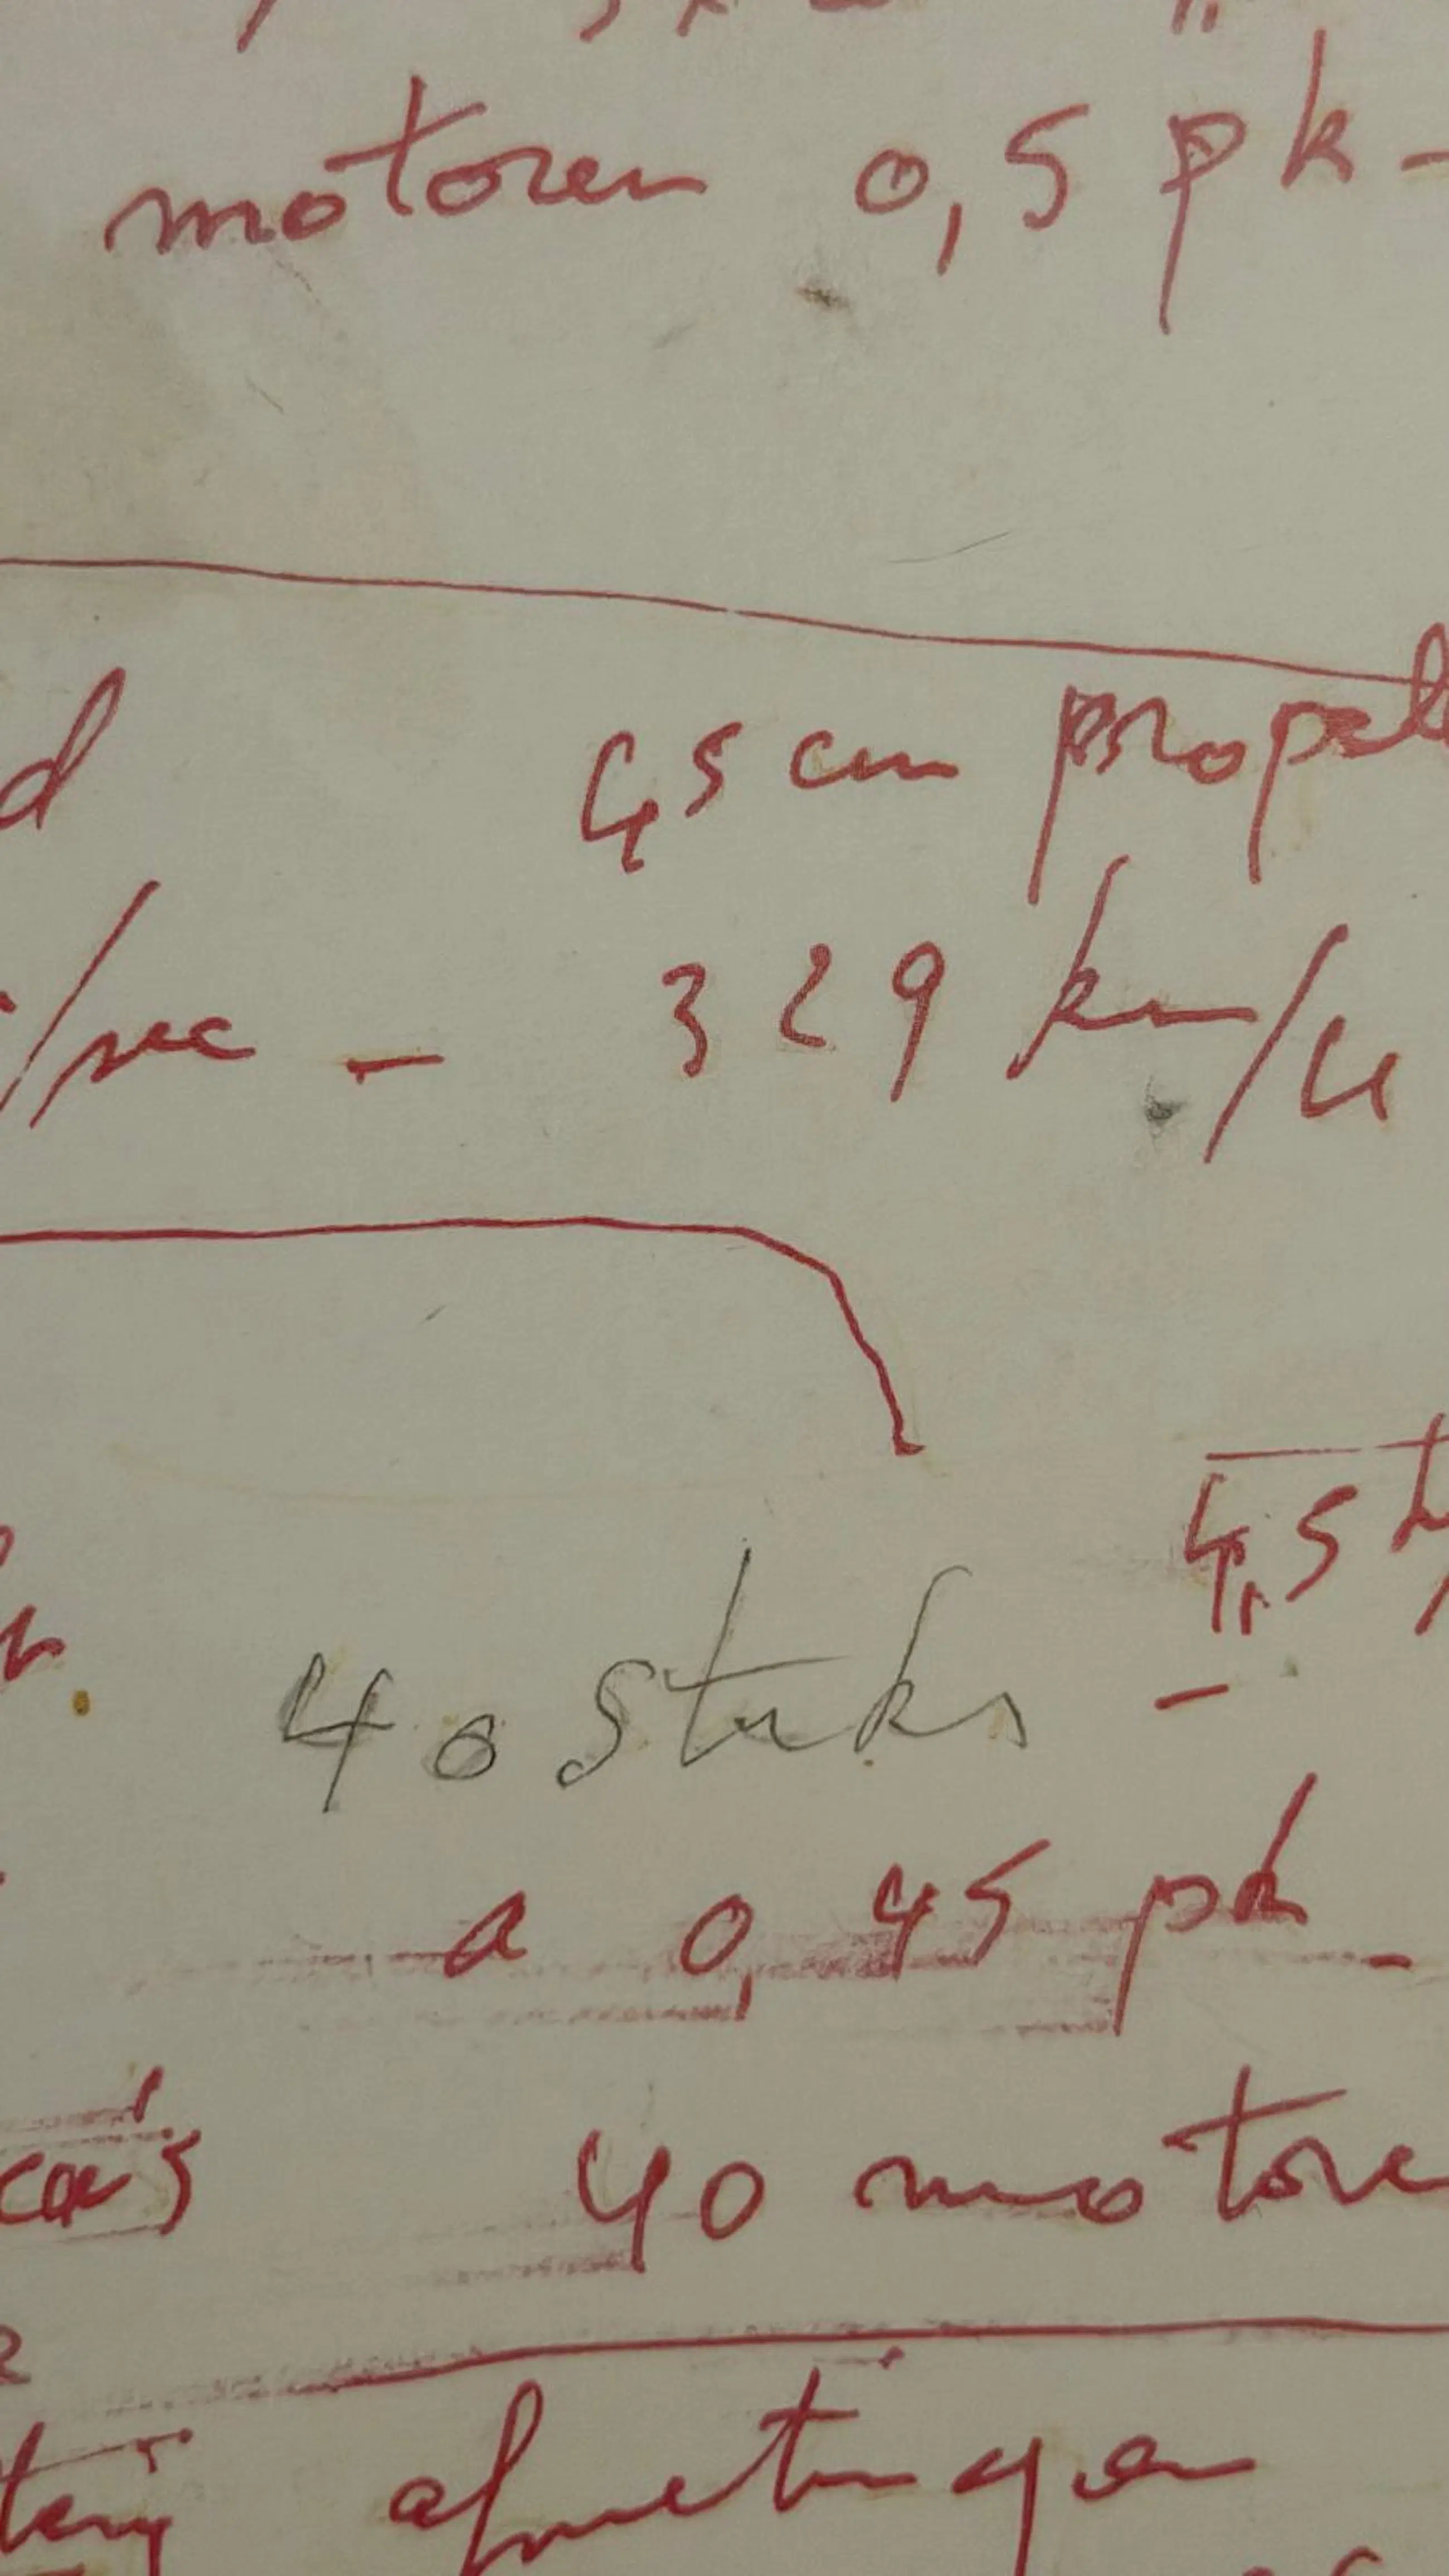 motoren 0,5 pk -
d 45 cm propel
/sec - 329 km/u
4,5
40 stuks -
a 0,45 pk -
40 motore
afmetingen